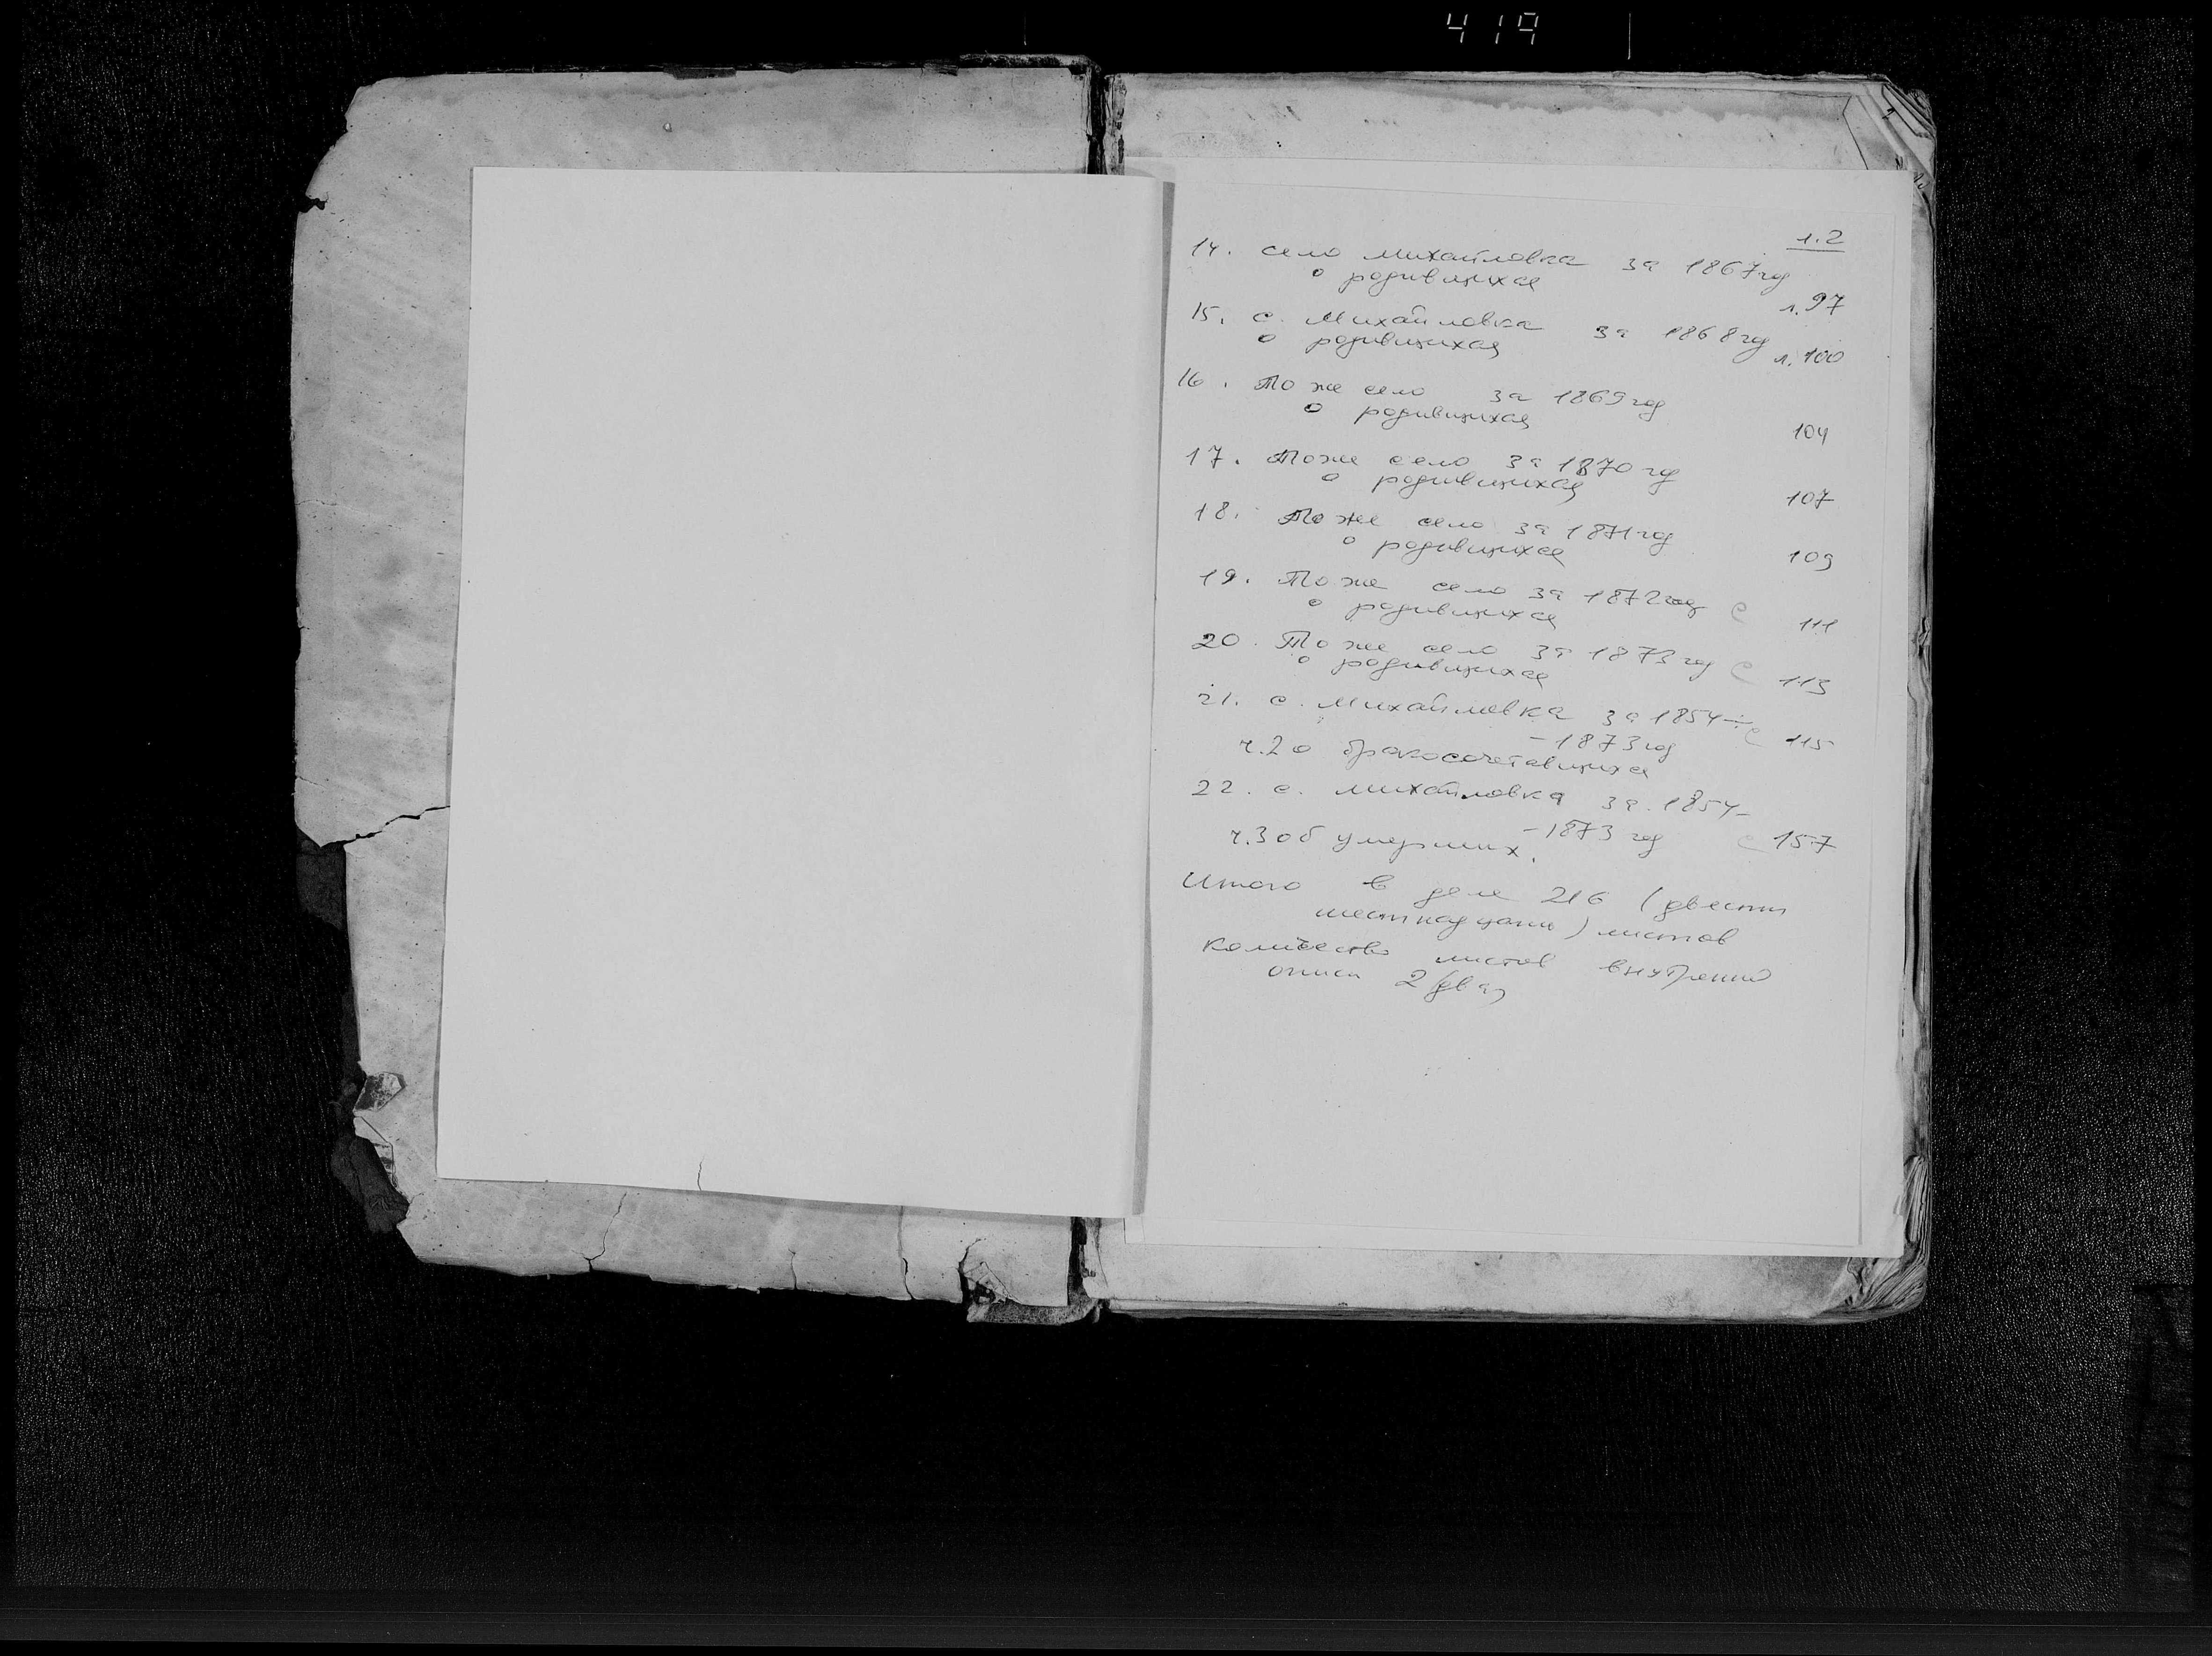 419
л.2
14. село Михайловка за 1867 год
о родившихся
л. 97
15. с. Михайловка за 1868 год
о родившихся
л. 100
16. То же село за 1869 год
о родившихся
104
17. То же село за 1870 год
о родившихся
107
18. То же село за 1871 год
о родившихся
109
19. То же село за 1872 год
о родившихся
с 111
20. То же село за 1873 год
о родившихся
с 113
21. с. Михайловка за 1854-
с 115
-1873 год
ч.2 о бракосочетавшихся
22. с. Михайловка за 1854-
-1873 год
ч.3 об умерших.
с 157
Итого в деле 216 (двести
шестнадцать) листов
Количество листов внутренней
описи 2 (два)